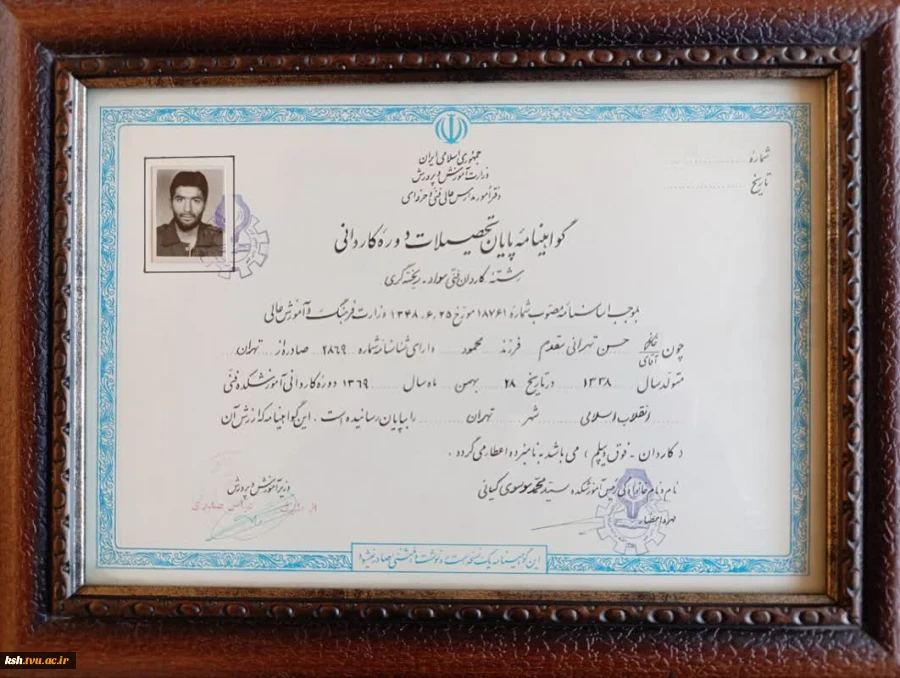 شمارهٔ
تاریخ
جمهوری اسلامی ایران
وزارت آموزش و پرورش
دفتر امور مدارس عالی فنی و حرفه‌ای
گواهینامهٔ پایان تحصیلات دورهٔ کاردانی
رشتهٔ: کاردان فنی مواد - ریخته‌گری
بموجب اساسنامه مصوب شمارهٔ ۱۸۷۶۱ مورخ ۲۵ ،۶ ،۱۳۴۸ وزارت فرهنگ و آموزش عالی
چون خانم آقای حسن تهرانی مقدم فرزند محمود دارای شناسنامه شماره ۲۸۶۹ صادره از تهران
متولد سال ۱۳۳۸ در تاریخ ۲۸ بهمن ماه سال ۱۳۶۹ دوره کاردانی آموزشکده فنی
انقلاب اسلامی شهر تهران را بپایان رسانیده است . این گواهینامه که ارزش آن
( کاردان - فوق دیپلم ) می باشد به نامبرده اعطا می گردد .
نام و نام خانوادگی رئیس آموزشکده سید محمد موسوی کیانی
مهر و امضاء
وزیر آموزش و پرورش
از طرف عباس صدری
این گواهینامه یک نسخه است و رونوشت یا المثنی صادر نمیشود
ksh.tvu.ac.ir